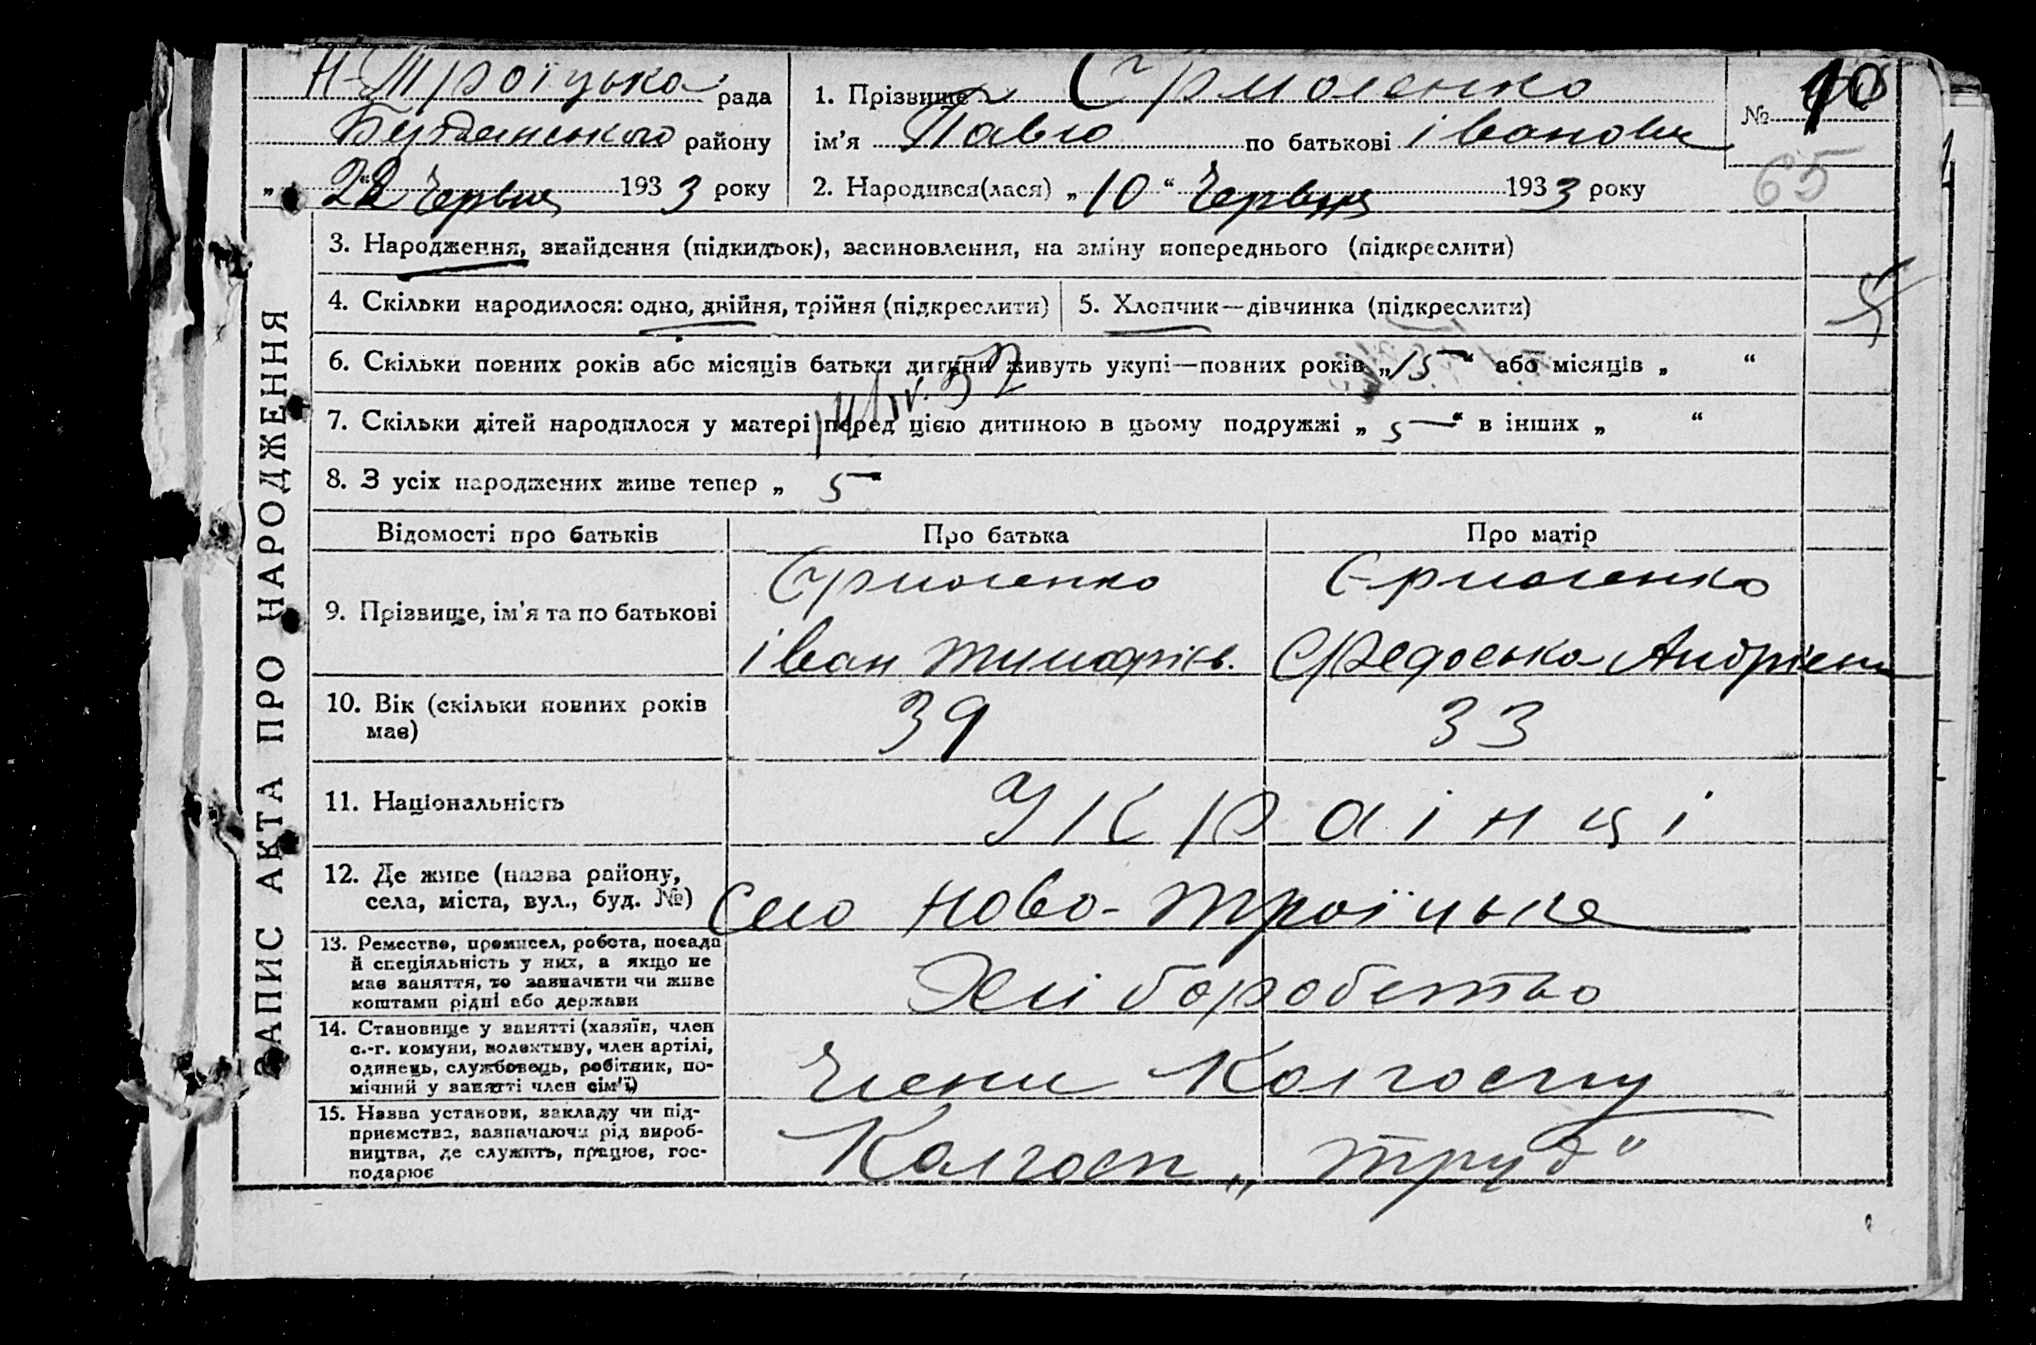 Н-Троїцька рада
Бердянського району
„22“ Червня 1933 року
1. Прізвище Єрмоленко
ім’я Павло по батькові іванович
2. Народився(лася) „10“ Червня 1933 року
№ 10
65
ЗАПИС АКТА ПРО НАРОДЖЕННЯ
3. Народження, знайдення (підкидьок), засиновлення, на зміну попереднього (підкреслити)
4. Скільки народилося: одно, двійня, трійня (підкреслити)
5. Хлопчик—дівчинка (підкреслити)
6. Скільки повних років або місяців батьки дитини живуть укупі—повних років „15“ або місяців „ “
7. Скільки дітей народилося у матері перед цією дитиною в цьому подружжі „5“ в інших „ “
8. З усіх народжених живе тепер „5“
Відомості про батьків
Про батька
Про матір
9. Прізвище, ім’я та по батькові
Єрмоленко
іван Тимофіїв.
Єрмоленко
Федоська Андріевн
10. Вік (скільки повних років
має)
39
33
11. Національність
Українці
12. Де живе (назва району,
села, міста, вул., буд. №)
Село Ново-Троїцьке
13. Ремество, промисел, робота, посада
й спеціяльність у них, а якщо не
має заняття, то зазначити чи живе
коштами рідні або держави
Хліборобство
14. Становище у занятті (хазяїн, член
с.-г. комуни, колективу, член артілі,
одинець, службовець, робітник, по-
мічний у занятті член сім’ї)
Члени Колгоспу
15. Назва установи, закладу чи під-
приємства, зазначаючи рід вироб-
ництва, де служить, працює, гос-
подарює
Колгосп „Труд“